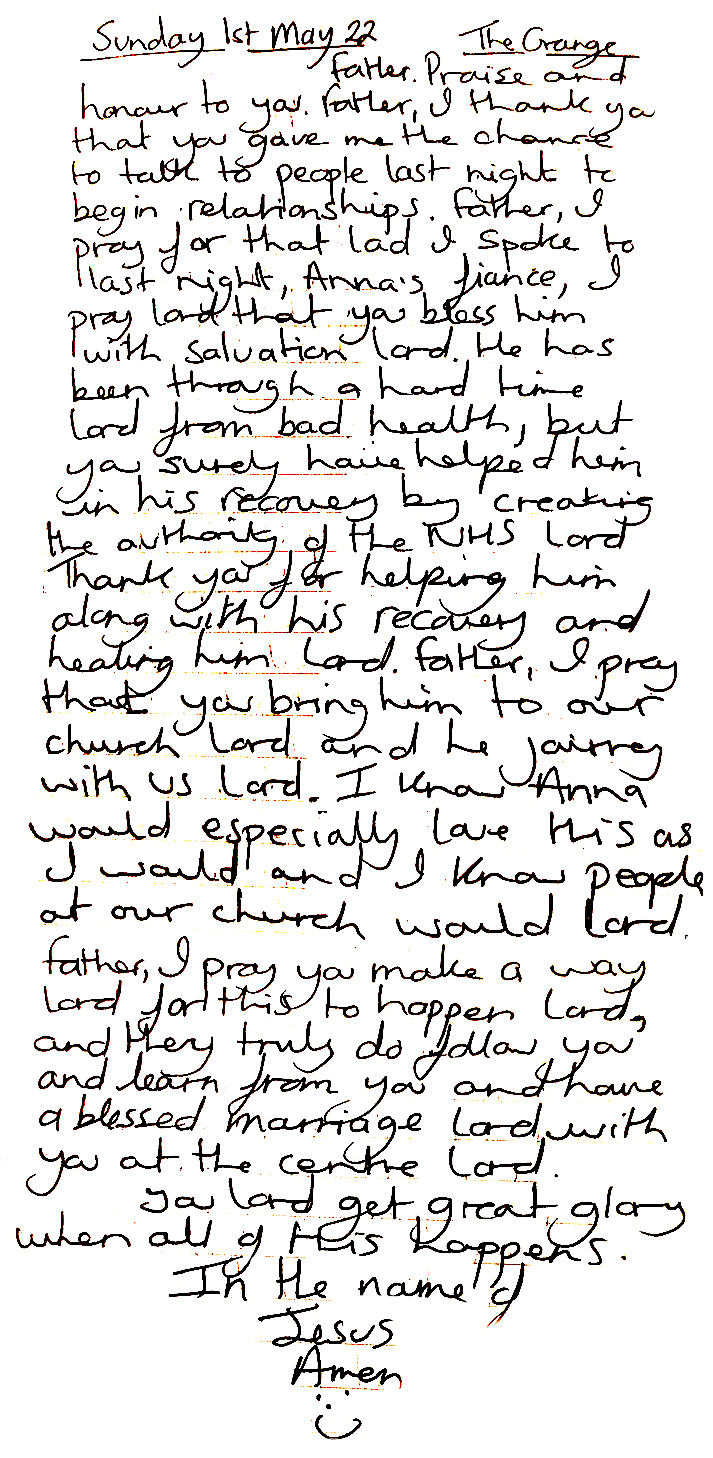 Sunday 1st May 22 The Grange
Father. Praise and
honour to you. Father, I thank you
that you gave me the chance
to talk to people last night to
begin relationships. Father, I
pray for that lad I spoke to
last night, Anna's fiance, I
pray Lord that you bless him
with salvation Lord. He has
been through a hard time
Lord from bad health, but
you surely have helped him
in his recovery by creating
the authority of the NHS Lord
Thank you for helping him
along with his recovery and
healing him Lord. Father, I pray
that you bring him to our
church Lord and he journey
with us Lord. I know Anna
would especially love this as
I would and I know people
at our church would Lord.
Father, I pray you make a way
Lord for this to happen Lord,
and they truly do follow you
and learn from you and have
a blessed marriage Lord, with
you at the centre Lord.
You Lord get great glory
when all of this happens.
In the name of
Jesus
Amen